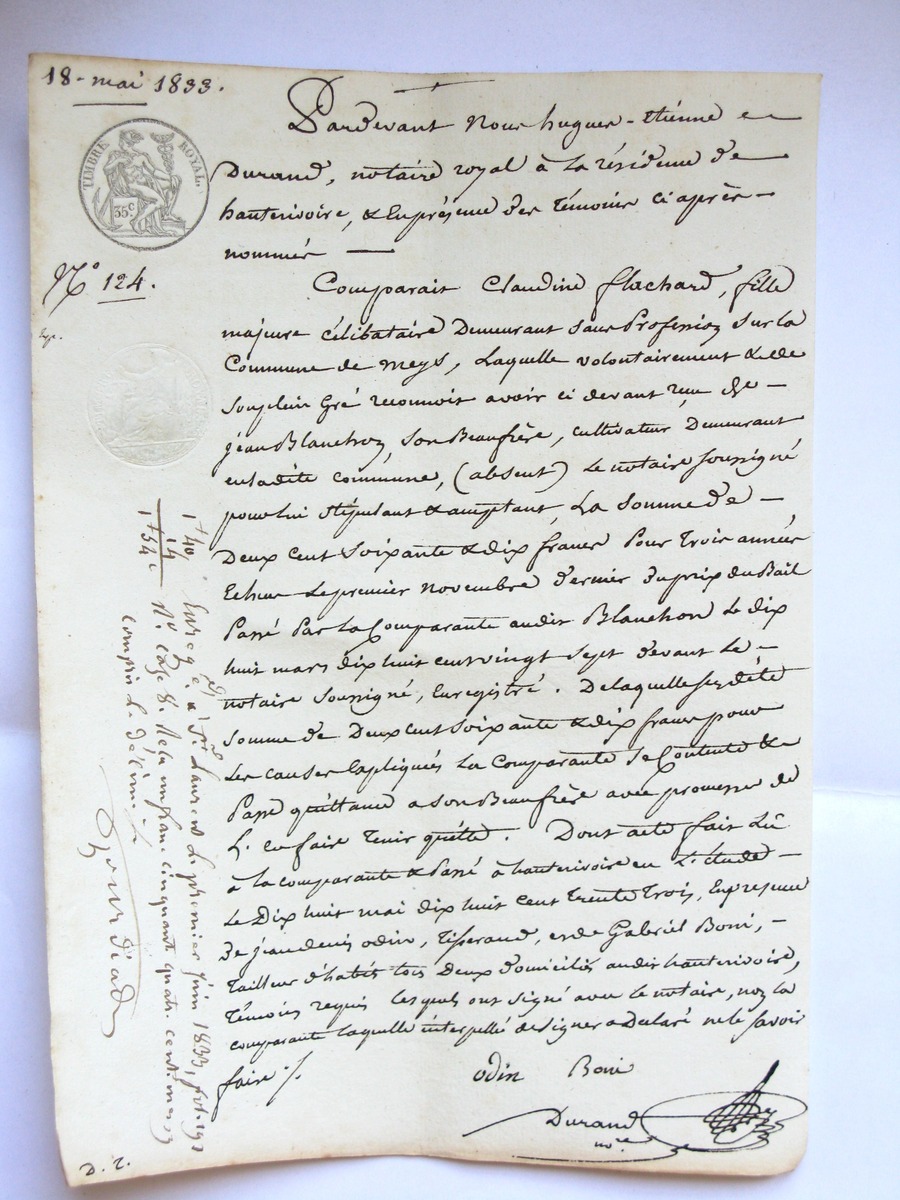 18 - mai 1833.
TIMBRE ROYAL.
35 c.
N.° 124.
Pardevant Nous hugues-étienne
Durand, notaire royal à la résidence de
hauterivoire, & En présence des Témoins ci après
nommés
Comparait Claudine flachard, fille
majeure célibataire Demeurant sans Profession sur la
Commune de meys, Laquelle volontairement & de
son plein Gré reconnoit avoir ci devant reçu de
jean Blanchon, son Beaufrère, cultivateur Demeurant
en ladite commune, (absent) Le notaire soussigné
pour lui stipulant & acceptant, La somme de
Deux cent soixante & dix francs Pour Trois années
Echues Le premier novembre dernier du prix du Bail
Passé Par la Comparante audit Blanchon Le dix
huit mars dix huit cent vingt sept devant Le
notaire soussigné, Enregistré. De laquelle susdite
somme de Deux cent soixante & dix francs pour
Les causes Expliquées La Comparante se Contente &
Passe quittance a son Beaufrère avec promesse de
L'en faire Tenir quitte. Dont acte fait Lû
à la comparante & Passé à hauterivoire en L'étude
Le Dix huit mai dix huit cent Trente Trois, En présence
de jean denis odin, Tisserand, et de Gabriel Boni,
Tailleur d'habits tous deux domiciliés audit hauterivoire,
Témoins requis lesquels ont signé avec le notaire, non la
comparante laquelle interpellé de signer a Déclaré ne le savoir
faire ./.
odin Boni
Durand
no.re
1 40
14
1 54 c
Enreg.é à S.t Laurent Le premier juin 1833, fol. 192
R.o case 8. Reçu un franc cinquante quatre centimes
compris le décime
D. T.